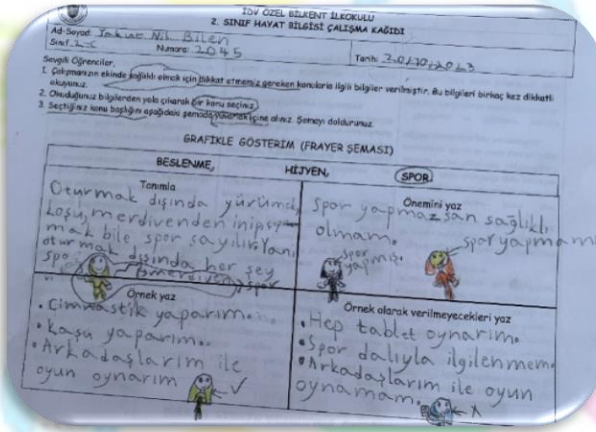 İDV ÖZEL BİLKENT İLKOKULU
2. SINIF HAYAT BİLGİSİ ÇALIŞMA KAĞIDI
Ad-Soyad: Nil Bilen
Sınıf: 2-C Numara: 2045 Tarih: 20/10/2023
Sevgili Öğrenciler,
1. Çalışmanızın ekinde sağlıklı olmak için dikkat etmemiz gereken konularla ilgili bilgiler verilmiştir. Bu bilgileri birkaç kez dikkatli
okuyunuz.
2. Okuduğunuz bilgilerden yola çıkarak bir konu seçiniz.
3. Seçtiğiniz konu başlığını aşağıdaki şemada yuvarlak içine alınız. Şemayı doldurunuz.
GRAFİKLE GÖSTERİM (FRAYER ŞEMASI)
BESLENME, HİJYEN, SPOR
Tanımla
Oturmak dışında yürümek,
koşu, merdivenden inip
mak bile spor sayılır. Yani
oturmak dışında her şey
spo
merdiven spor
Önemini yaz
Spor yapmazsan sağlıklı
olmam.
spor yapmış.
spor yapmam
Örnek yaz
• Cimnastik yaparım.
• Koşu yaparım.
• Arkadaşlarım ile
oyun oynarım ✓
Örnek olarak verilmeyecekleri yaz
• Hep tablet oynarım.
• Spor dalıyla ilgilenmem.
• Arkadaşlarım ile oyun
oynamam. X